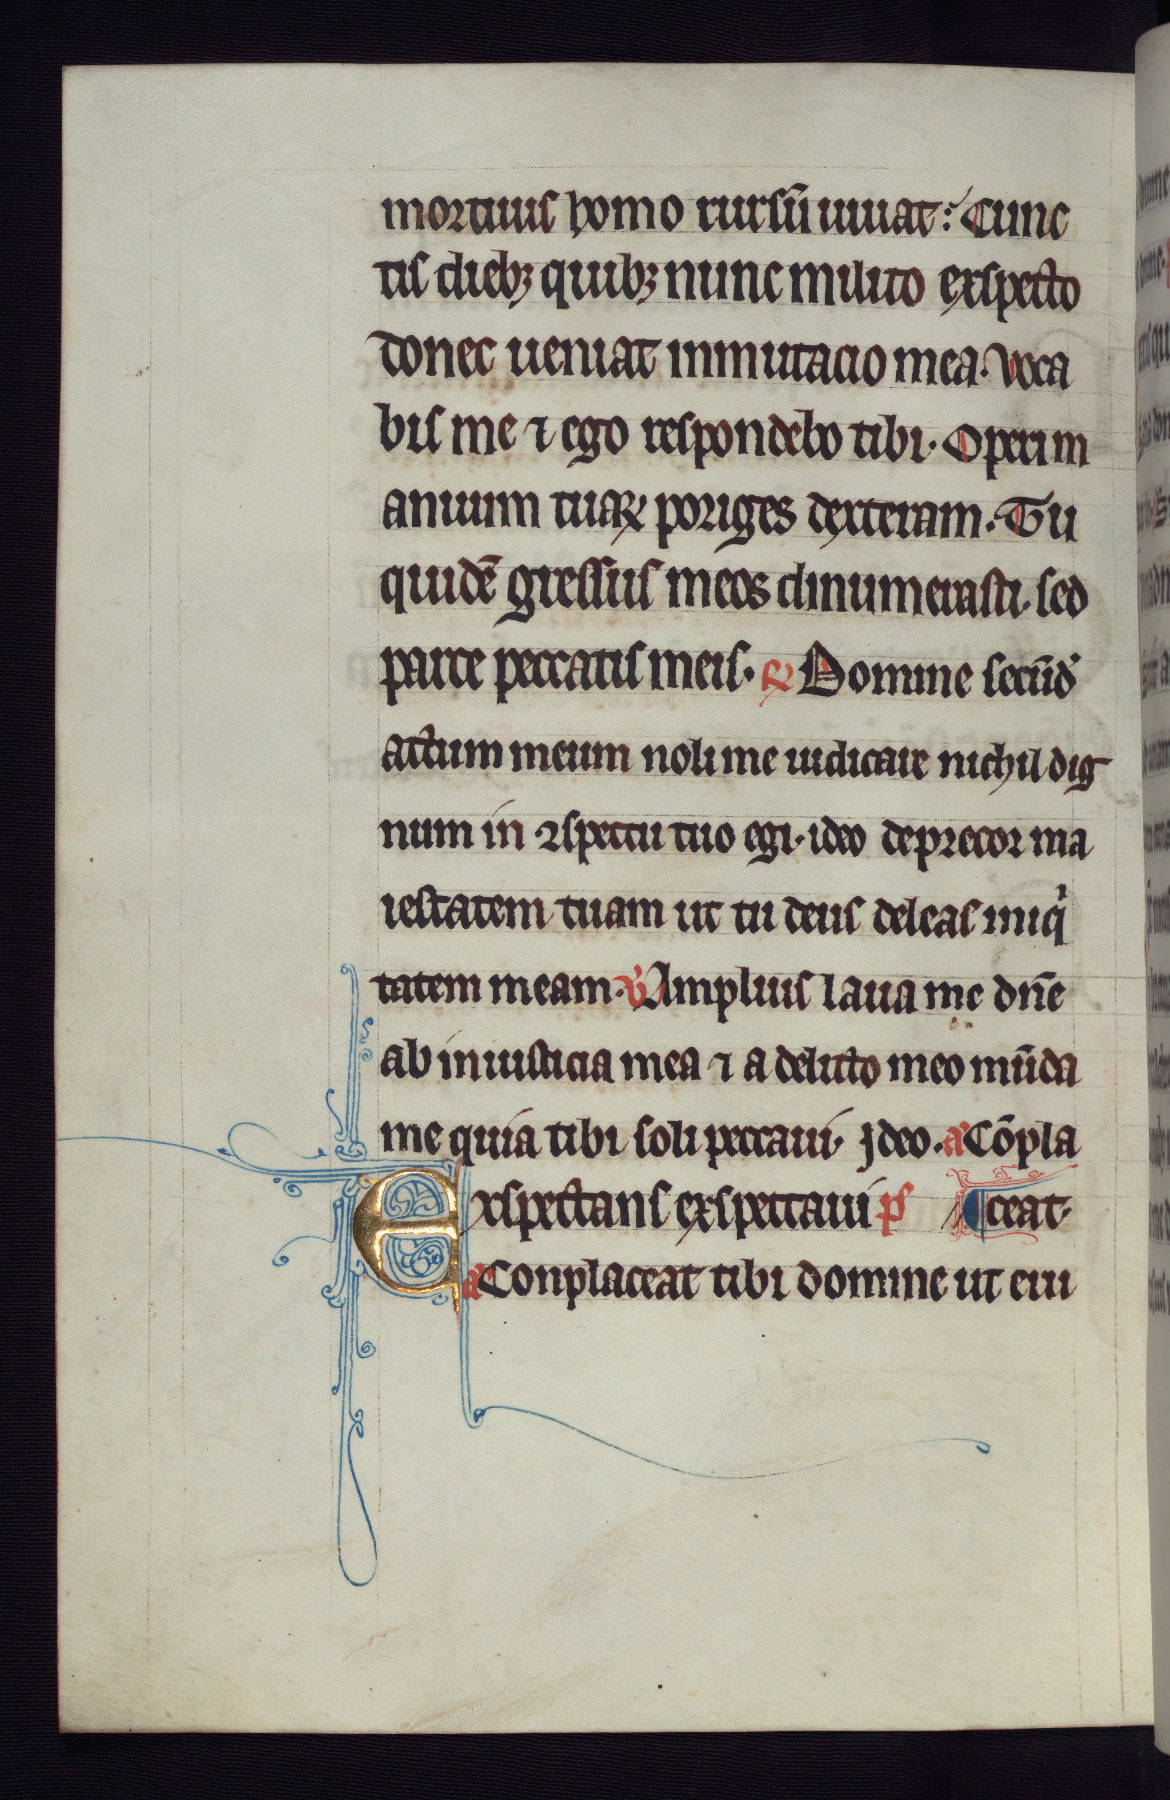 mortuus homo rursū uiuat: Cunc
tis dieb; quib; nunc milito exspecto
donec ueniat inmutacio mea. Voca
bis me ⁊ ego respondebo tibi. Operi m
anuum tuaꝝ poriges dexteram. Tu
quidē gressus meos dinumerasti. sed
parce peccatis meis. ℟ Domine secūd
actum meum noli me iudicare nichil dig
num in ꝯspectu tuo egi. ideo deprecor ma
iestatem tuam ut tu deus deleas iniqͥ
tatem meam. ℣ Amplius laua me dn̄e
ab iniusticia mea ⁊ a delicto meo mūda
me quia tibi soli peccaui. Ideo. a Cōpla
Exspectans exspectaui ps ceat.
a Conplaceat tibi domine ut eru